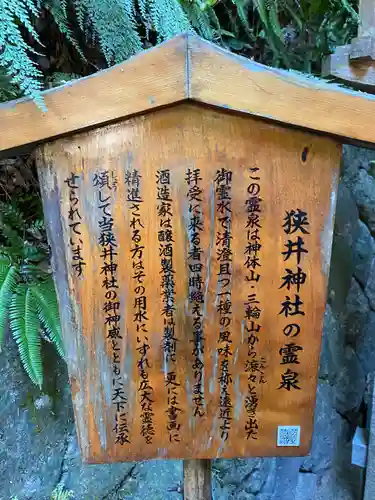 狭井神社の霊泉
この霊泉は神体山・三輪山から滾々と湧き出た
こんこん
御霊水で清澄且つ一種の風味を称え遠近より
拝受に来る者四時絶える事がありません
酒造家は醸酒製薬業者は製剤に更には書画に
精進される方はその用水にいずれも広大な霊徳を
頌して当狭井神社の御神威とともに天下に伝承
しょう
せられています